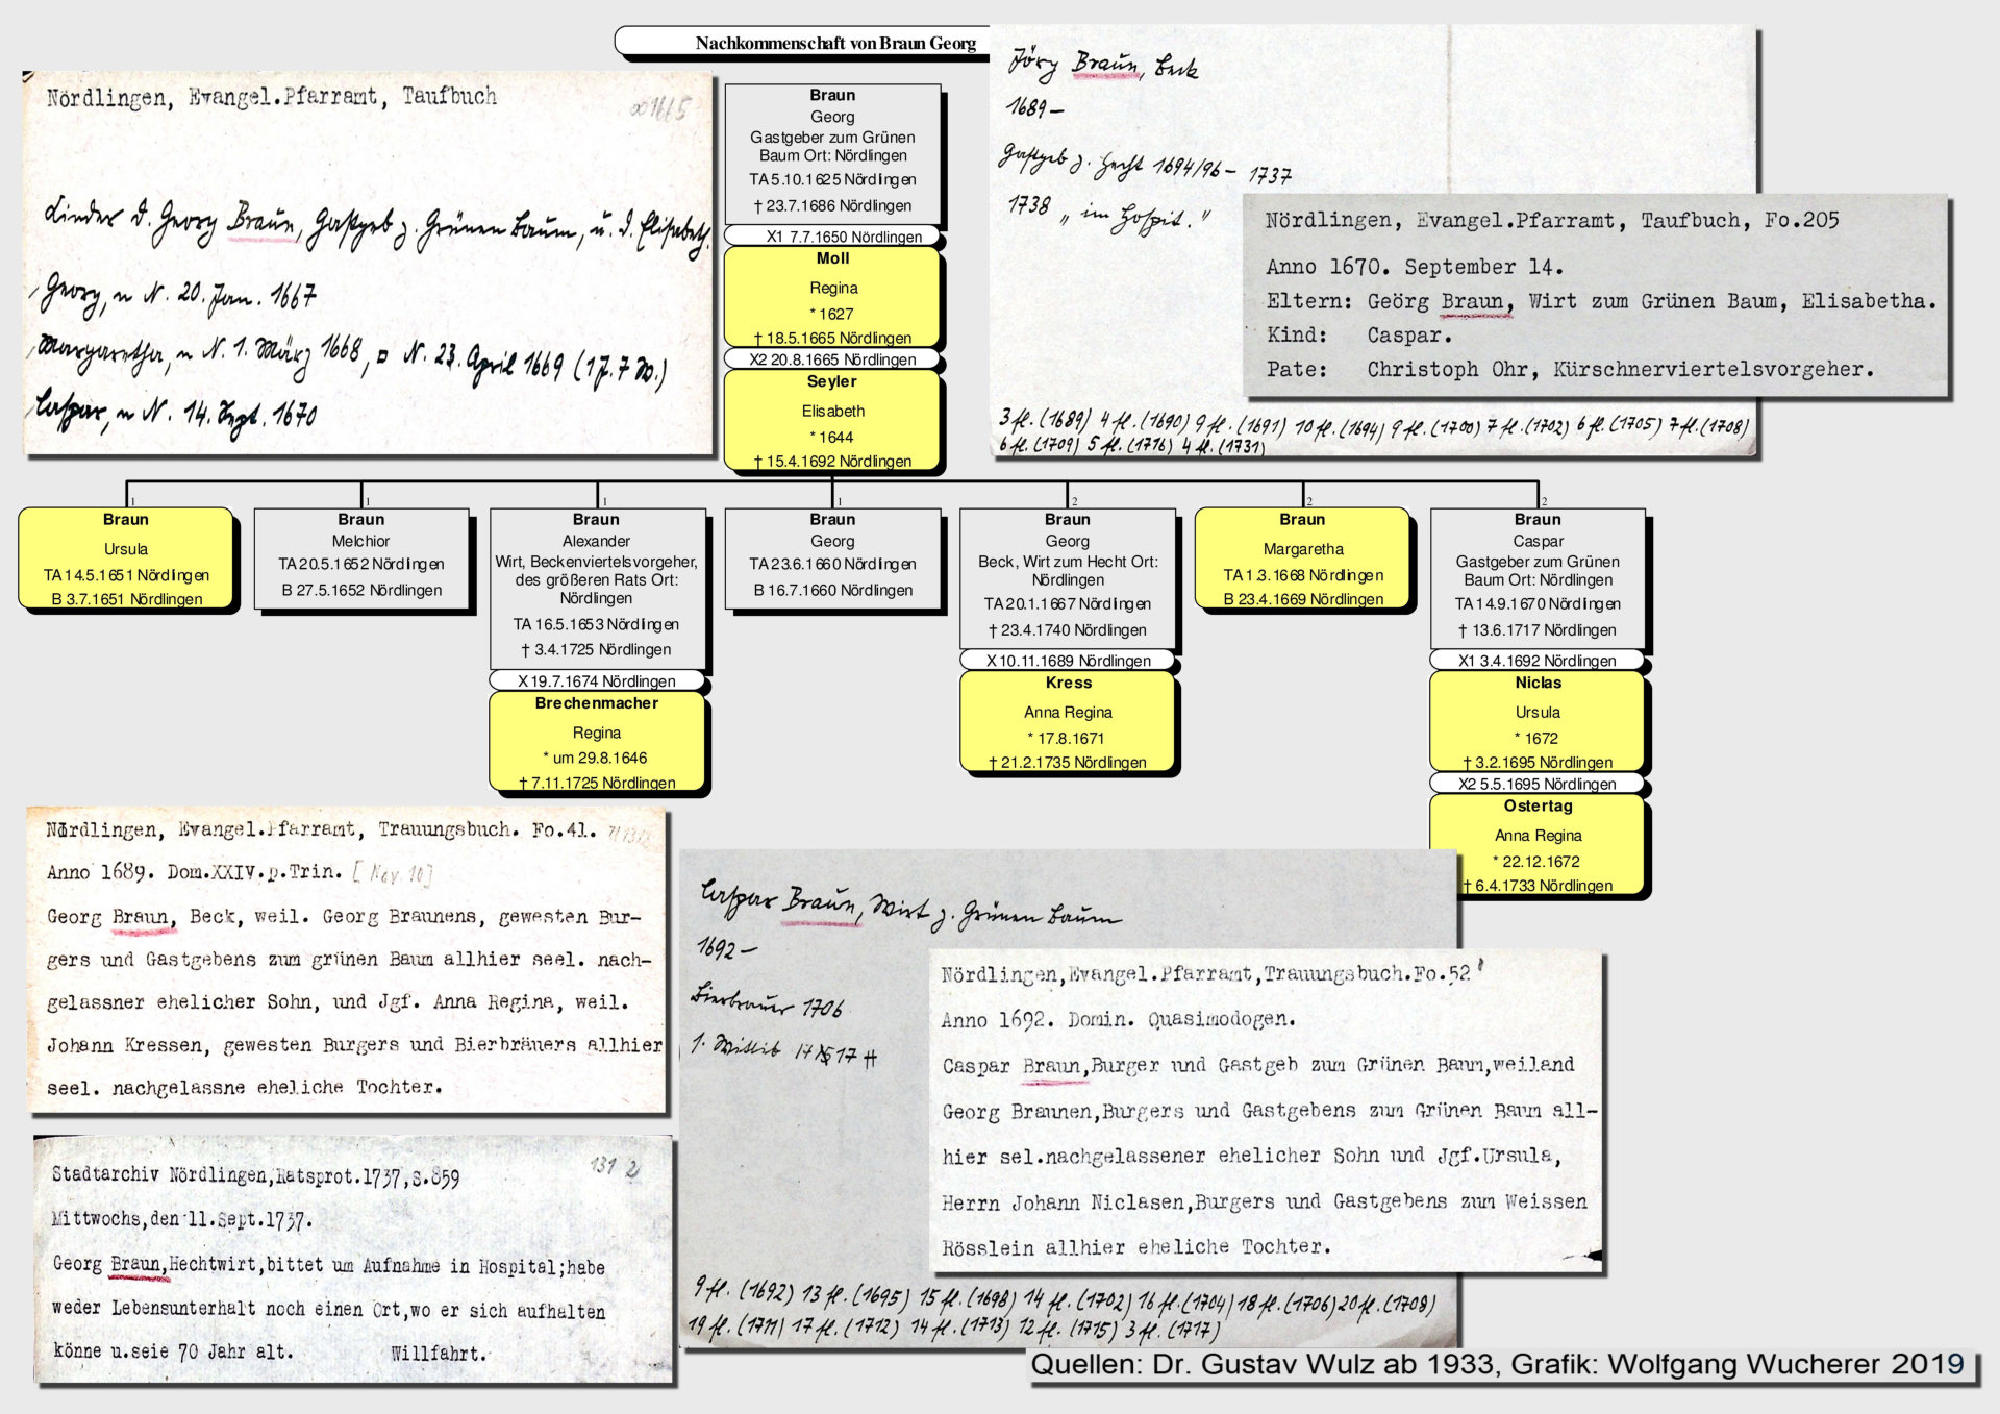 Nachkommenschaft von Braun Georg
Nördlingen, Evangel.Pfarramt, Taufbuch
∞1665
Kinder d. Georg Braun, Gastgeb z. Grünen Baum, u. d. Elisabeth.
Georg, ~ N. 20. Jan. 1667
Margaretha, ~ N. 1. März 1668, □ N. 23. April 1669 (1 J. 7 W.)
Caspar, ~ N. 14. Sept. 1670
Braun
Georg
Gastgeber zum Grünen
Baum Ort: Nördlingen
TA 5.10.1625 Nördlingen
† 23.7.1686 Nördlingen
X1 7.7.1650 Nördlingen
Moll
Regina
* 1627
† 18.5.1665 Nördlingen
X2 20.8.1665 Nördlingen
Seyler
Elisabeth
* 1644
† 15.4.1692 Nördlingen
Jörg Braun, Beck
1689 –
Gastgeb z. Hecht 1694/96 – 1737
1738 „ im Hospit."
3 fl. (1689) 4 fl. (1690) 9 fl. (1691) 10 fl. (1694) 9 fl. (1700) 7 fl. (1702) 6 fl. (1705) 7 fl. (1708)
6 fl. (1709) 5 fl. (1716) 4 fl. (1731)
Nördlingen, Evangel.Pfarramt, Taufbuch, Fo.205
Anno 1670. September 14.
Eltern: Geörg Braun, Wirt zum Grünen Baum, Elisabetha.
Kind: Caspar.
Pate: Christoph Ohr, Kürschnerviertelsvorgeher.
1
1
1
1
2
2
2
Braun
Ursula
TA 14.5.1651 Nördlingen
B 3.7.1651 Nördlingen
Braun
Melchior
TA 20.5.1652 Nördlingen
B 27.5.1652 Nördlingen
Braun
Alexander
Wirt, Beckenviertelsvorgeher,
des größeren Rats Ort:
Nördlingen
TA 16.5.1653 Nördlingen
† 3.4.1725 Nördlingen
X 19.7.1674 Nördlingen
Brechenmacher
Regina
* um 29.8.1646
† 7.11.1725 Nördlingen
Braun
Georg
TA 23.6.1660 Nördlingen
B 16.7.1660 Nördlingen
Braun
Georg
Beck, Wirt zum Hecht Ort:
Nördlingen
TA 20.1.1667 Nördlingen
† 23.4.1740 Nördlingen
X 10.11.1689 Nördlingen
Kress
Anna Regina
* 17.8.1671
† 21.2.1735 Nördlingen
Braun
Margaretha
TA 1.3.1668 Nördlingen
B 23.4.1669 Nördlingen
Braun
Caspar
Gastgeber zum Grünen
Baum Ort: Nördlingen
TA 14.9.1670 Nördlingen
† 13.6.1717 Nördlingen
X1 3.4.1692 Nördlingen
Niclas
Ursula
* 1672
† 3.2.1695 Nördlingen
X2 5.5.1695 Nördlingen
Ostertag
Anna Regina
* 22.12.1672
† 6.4.1733 Nördlingen
Nördlingen, Evangel.Pfarramt, Trauungsbuch. Fo.41.
Anno 1689. Dom.XXIV.p.Trin. [Nov. 10]
Georg Braun, Beck, weil. Georg Braunens, gewesten Bur-
gers und Gastgebens zum grünen Baum allhier seel. nach-
gelassner ehelicher Sohn, und Jgf. Anna Regina, weil.
Johann Kressen, gewesten Burgers und Bierbräuers allhier
seel. nachgelassne eheliche Tochter.
Stadtarchiv Nördlingen,Ratsprot.1737,S.859
131 2
Mittwochs,den 11.Sept.1737.
Georg Braun,Hechtwirt,bittet um Aufnahme in Hospital;habe
weder Lebensunterhalt noch einen Ort,wo er sich aufhalten
könne u.seie 70 Jahr alt. Willfahrt.
Caspar Braun, Wirt z. Grünen Baum
1692 –
Bierbrauer 1706
1. Wittib 17
9 fl. (1692) 13 fl. (1695) 15 fl. (1698) 14 fl. (1702) 16 fl. (1704) 18 fl. (1706) 20 fl. (1708)
19 fl. (1711) 17 fl. (1712) 14 fl. (1713) 12 fl. (1715) 3 fl. (1717)
Nördlingen,Evangel.Pfarramt,Trauungsbuch.Fo.52
Anno 1692. Domin. Quasimodogen.
Caspar Braun,Burger und Gastgeb zum Grünen Baum,weiland
Georg Braunen,Burgers und Gastgebens zum Grünen Baum all-
hier sel.nachgelassener ehelicher Sohn und Jgf.Ursula,
Herrn Johann Niclasen,Burgers und Gastgebens zum Weissen
Rösslein allhier eheliche Tochter.
Quellen: Dr. Gustav Wulz ab 1933, Grafik: Wolfgang Wucherer 2019